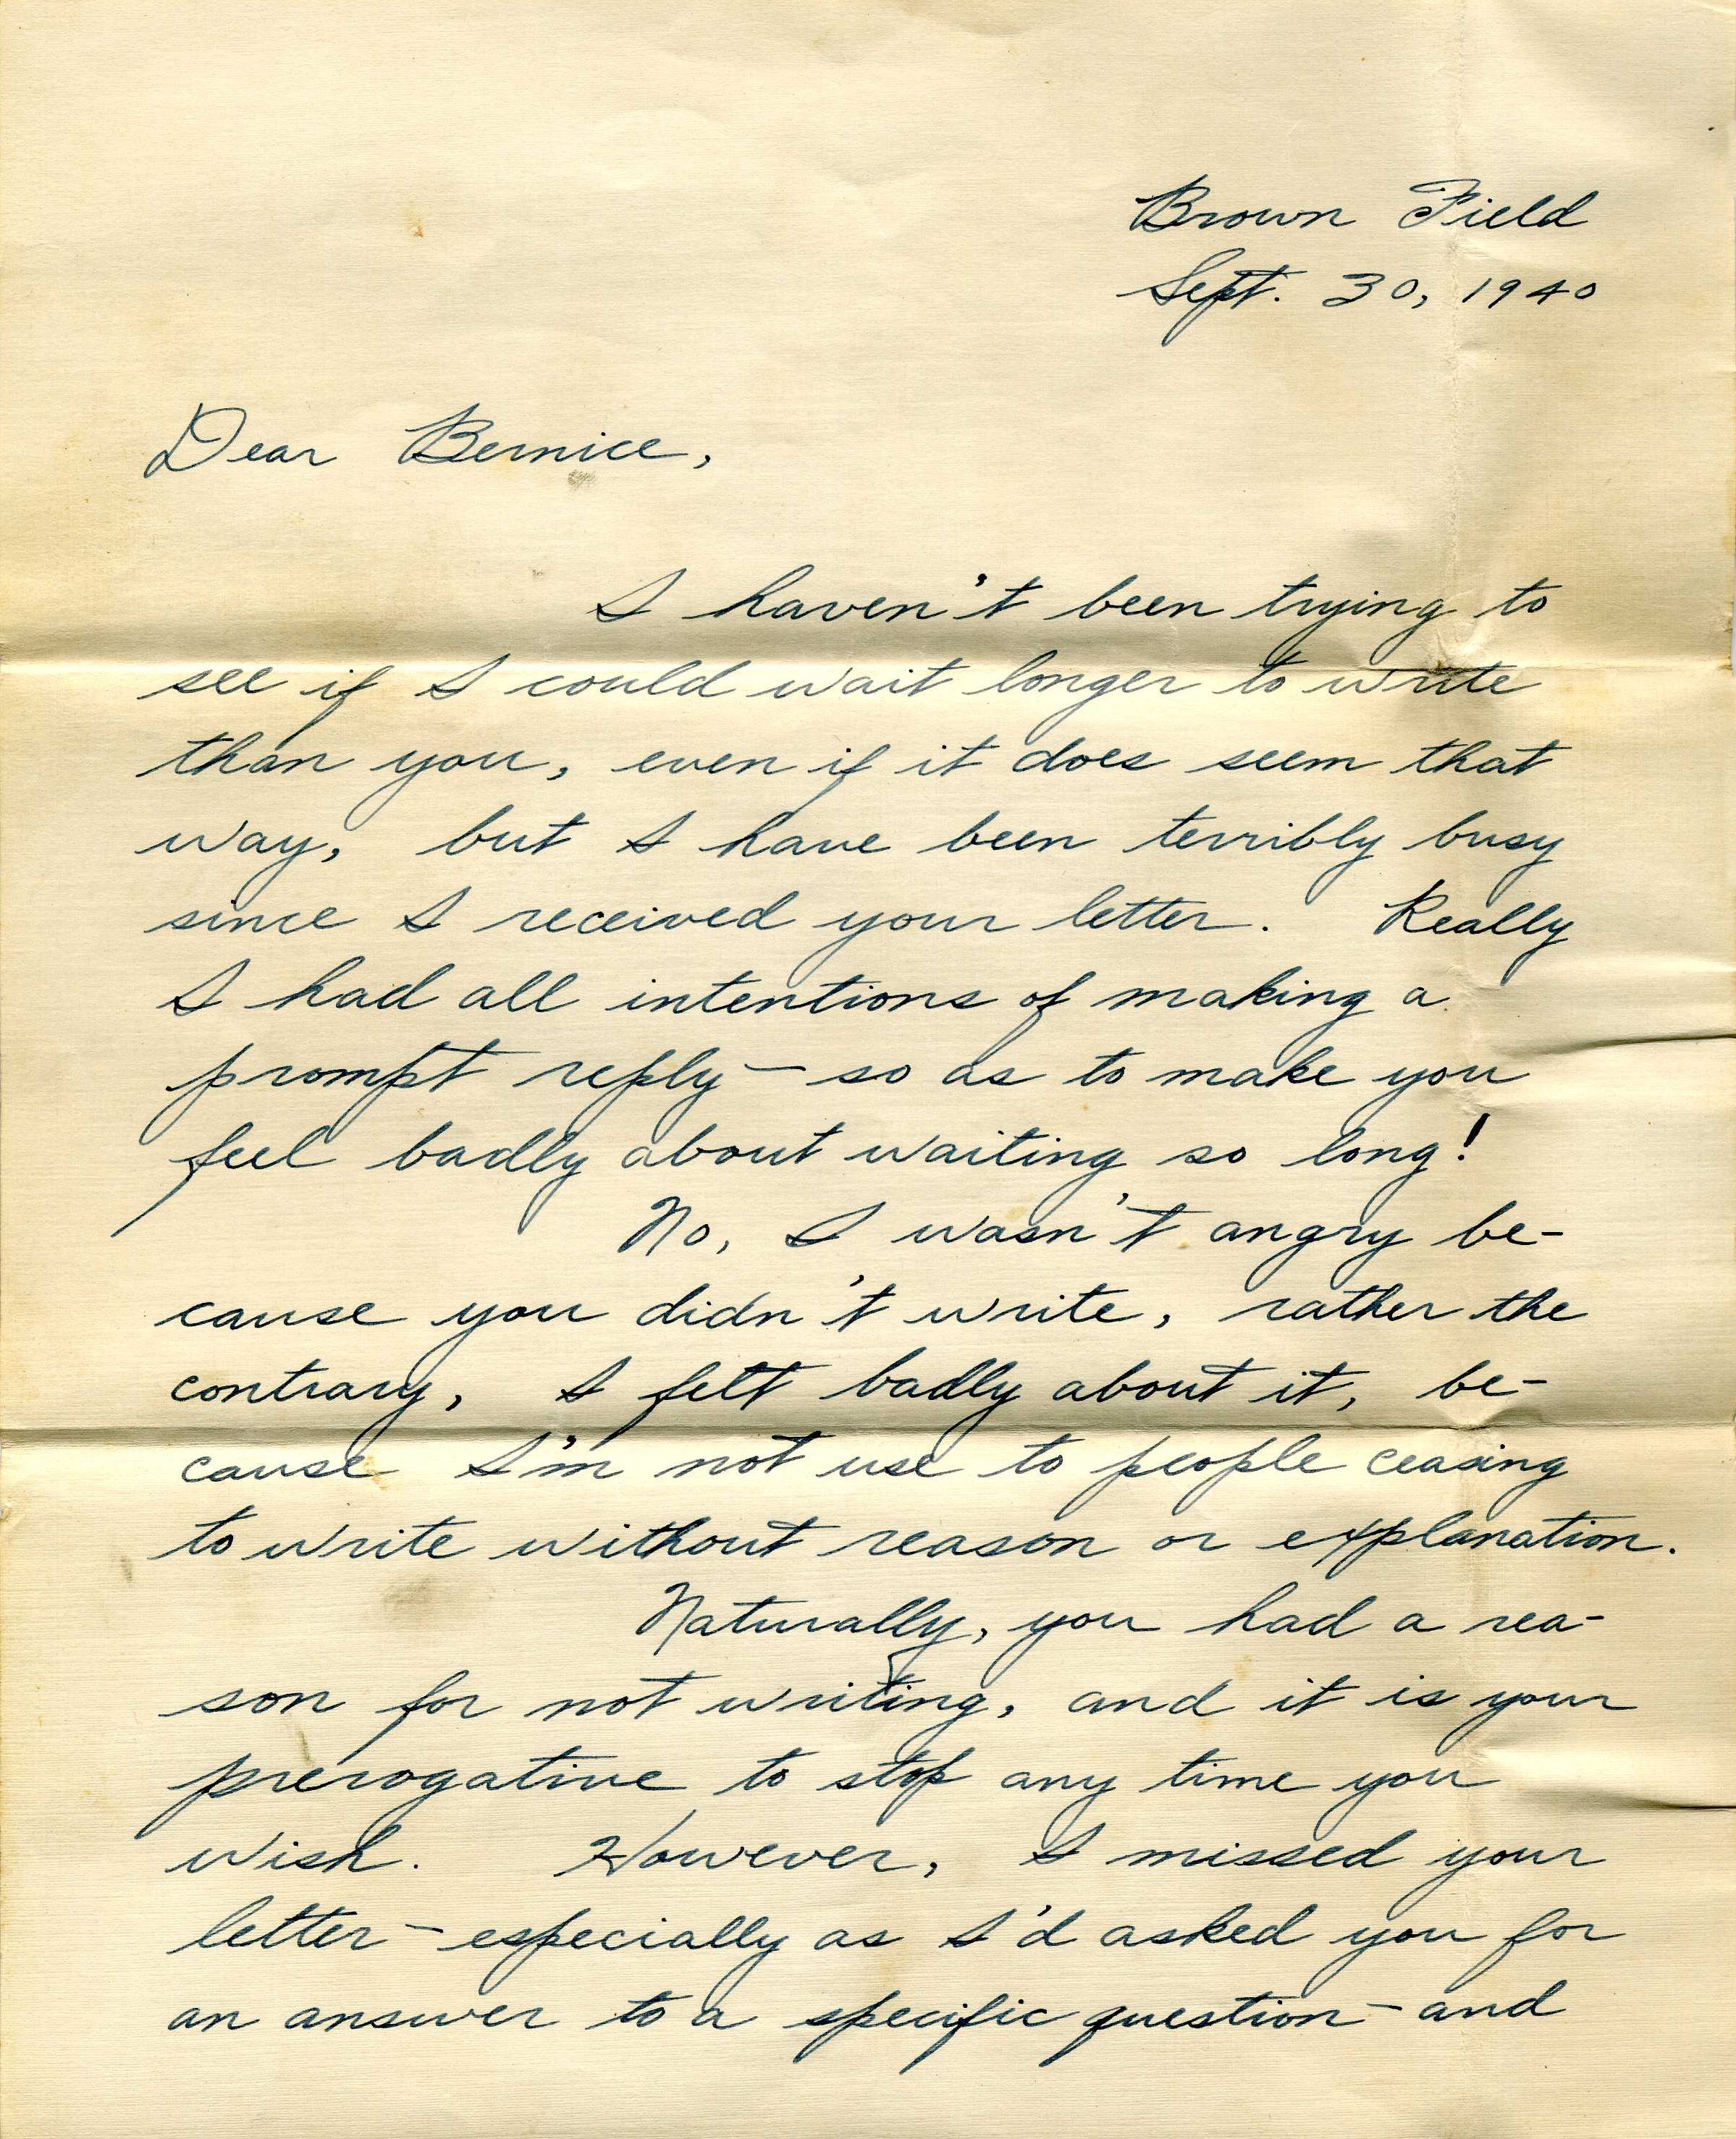 Brown Field
Sept. 30, 1940
Dear Bernice,
I haven't been trying to
see if I could wait longer to write
than you, even if it does seem that
way, but I have been terribly busy
since I received your letter. Really
I had all intentions of making a
prompt reply — so as to make you
feel badly about waiting so long!
No, I wasn't angry be-
cause you didn't write, rather the
contrary, I felt badly about it, be-
cause I'm not use to people ceasing
to write without reason or explanation.
Naturally, you had a rea-
son for not writing, and it is your
prerogative to stop any time you
wish. However, I missed your
letter — especially as I'd asked you for
an answer to a specific question — and